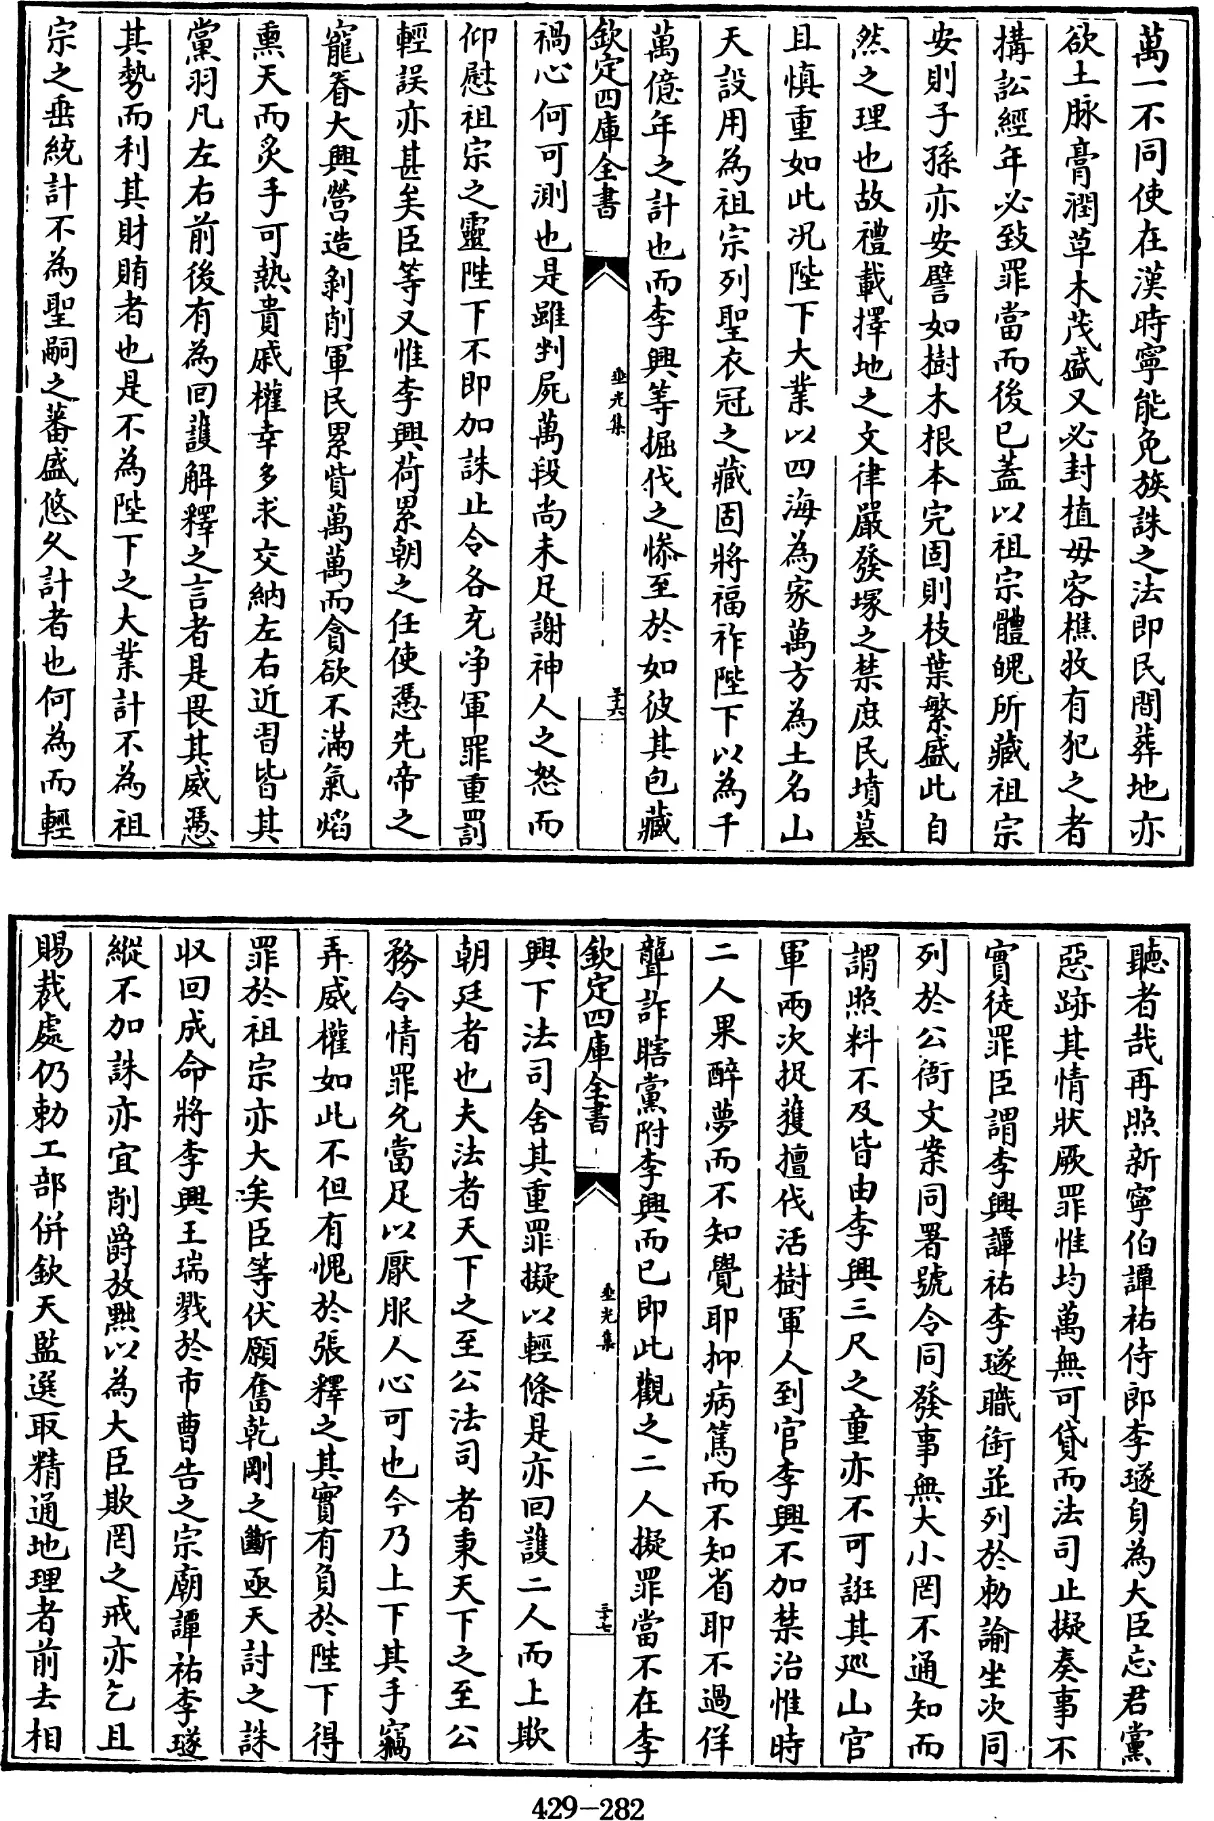 萬一不同使在漢時寧能免族誅之法即民間葬地亦
欲土脉膏潤草木茂盛又必封植毋容樵牧有犯之者
搆訟經年必致罪當而後已蓋以祖宗體魄所藏祖宗
安則子孫亦安譬如樹木根本完固則枝葉繁盛此自
然之理也故禮載擇地之文律嚴發塚之禁庶民墳墓
且慎重如此况陛下大業以四海為家萬方為土名山
天設用為祖宗列聖衣冠之藏固將福祚陛下以為千
萬億年之計也而李興等掘伐之惨至於如彼其包藏
欽定四庫全書
垂光集
三十六
禍心何可測也是雖剉屍萬段尚未足謝神人之怒而
仰慰祖宗之靈陛下不即加誅止令各充净軍罪重罰
輕誤亦甚矣臣等又惟李興荷累朝之任使憑先帝之
寵眷大興營造剝削軍民累貲萬萬而貪欲不滿氣焰
熏天而炙手可熱貴戚權幸多求交納左右近習皆其
黨羽凡左右前後有為回護解釋之言者是畏其威憑
其勢而利其財賄者也是不為陛下之大業計不為祖
宗之垂統計不為聖嗣之蕃盛悠久計者也何為而輕
聽者哉再照新寧伯譚祐侍郎李璲身為大臣忘君黨
惡跡其情狀厥罪惟均萬無可貸而法司止擬奏事不
實徒罪臣謂李興譚祐李璲職銜並列於勅諭坐次同
列於公衙文案同署號令同發事無大小罔不通知而
謂照料不及皆由李興三尺之童亦不可誑其廵山官
軍兩次捉獲擅伐活樹軍人到官李興不加禁治惟時
二人果醉夢而不知覺耶抑病篤而不知省耶不過佯
聾詐瞎黨附李興而已即此觀之二人擬罪當不在李
欽定四庫全書
垂光集
三十七
興下法司舍其重罪擬以輕條是亦回護二人而上欺
朝廷者也夫法者天下之至公法司者秉天下之至公
務令情罪允當足以厭服人心可也今乃上下其手竊
弄威權如此不但有愧於張釋之其實有負於陛下得
罪於祖宗亦大矣臣等伏願奮乾剛之斷亟天討之誅
収回成命將李興王瑞戮於市曹告之宗廟譚祐李璲
縱不加誅亦宜削爵放黜以為大臣欺罔之戒亦乞且
賜裁處仍勅工部併欽天監選取精通地理者前去相
429-282